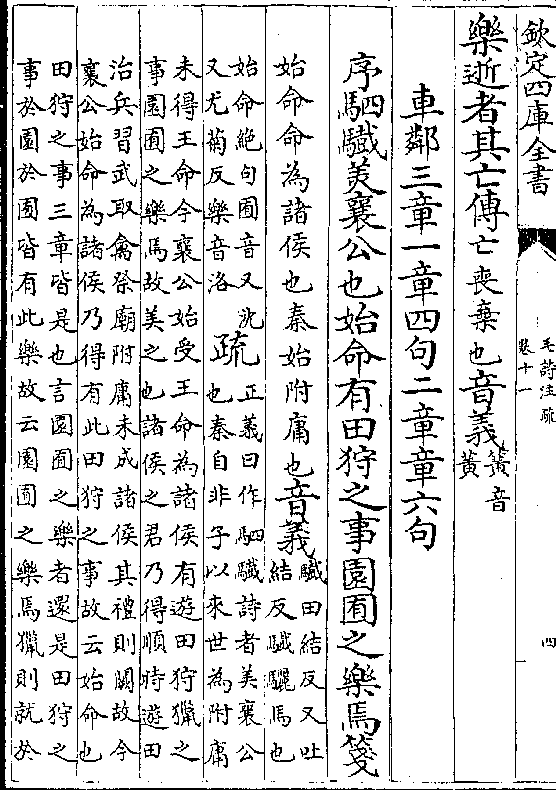 欽定四庫全書
毛詩注疏
卷十一
四
樂逝者其亡傳亡喪棄也音義簧音黃
車鄰三章一章四句二章章六句
序駟驖美襄公也始命有田狩之事園囿之樂焉箋
始命命為諸侯也秦始附庸也音義驖田結反又吐
結反驖驪馬也
始命絶句囿音又沈
又尤菊反樂音洛
疏正義曰作駟驖詩者美襄公
也秦自非子以來世為附庸
未得王命今襄公始受王命為諸侯有遊田狩獵之
事園囿之樂焉故美之也諸侯之君乃得順時遊田
治兵習武取禽祭廟附庸未成諸侯其禮則闕故今
襄公始命為諸侯乃得有此田狩之事故云始命也
田狩之事三章皆是也言園囿之樂者還是田狩之
事於園於囿皆有此樂故云園囿之樂焉獵則就於